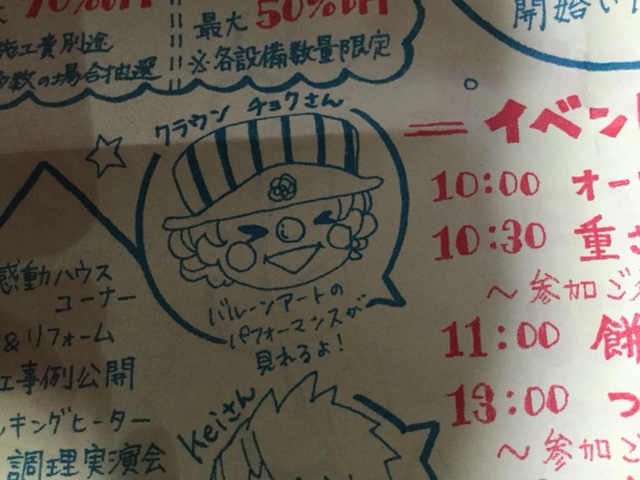 70%off
最大 50%off
施工費別途
※各設備数量限定
多数の場合抽選
開始
クラウン チョクさん
イベン
10:00 オー
10:30 重さ
～参加ご
11:00 餅
13:00 つ
～参加ご
感動ハウス
コーナー
&リフォーム
工事例公開
ッキングヒーター
調理実演会
バルーンアートの
パフォーマンスが
見れるよ!
Keiさん